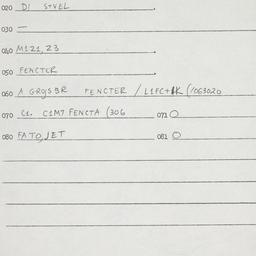 020 DI STVEL
030 —
040 M121, 23
050 FENCTER
060 A GROJSBR FENCTER / L1FC+ (1063020
070 C1. C1M7 FENCTA (306 071
080 FATO, JET 081